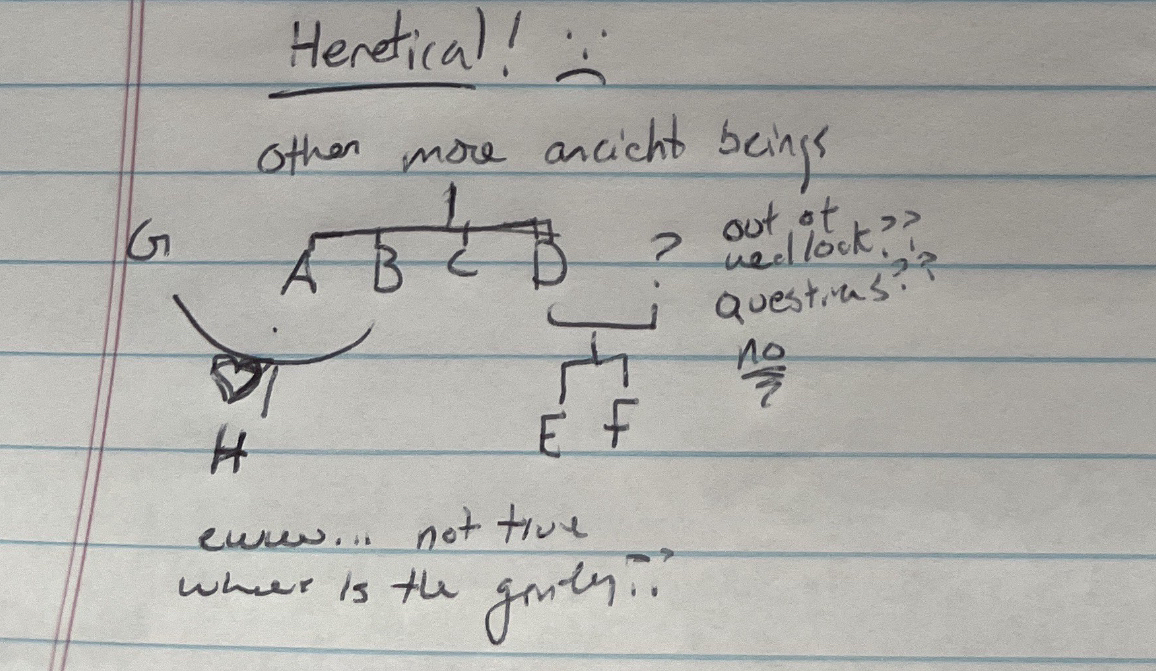 Heretical! :(
other more ancient beings
G
A B C D ?
out of
wedlock??
questions??
no
E F
H
ewww... not true
where is the